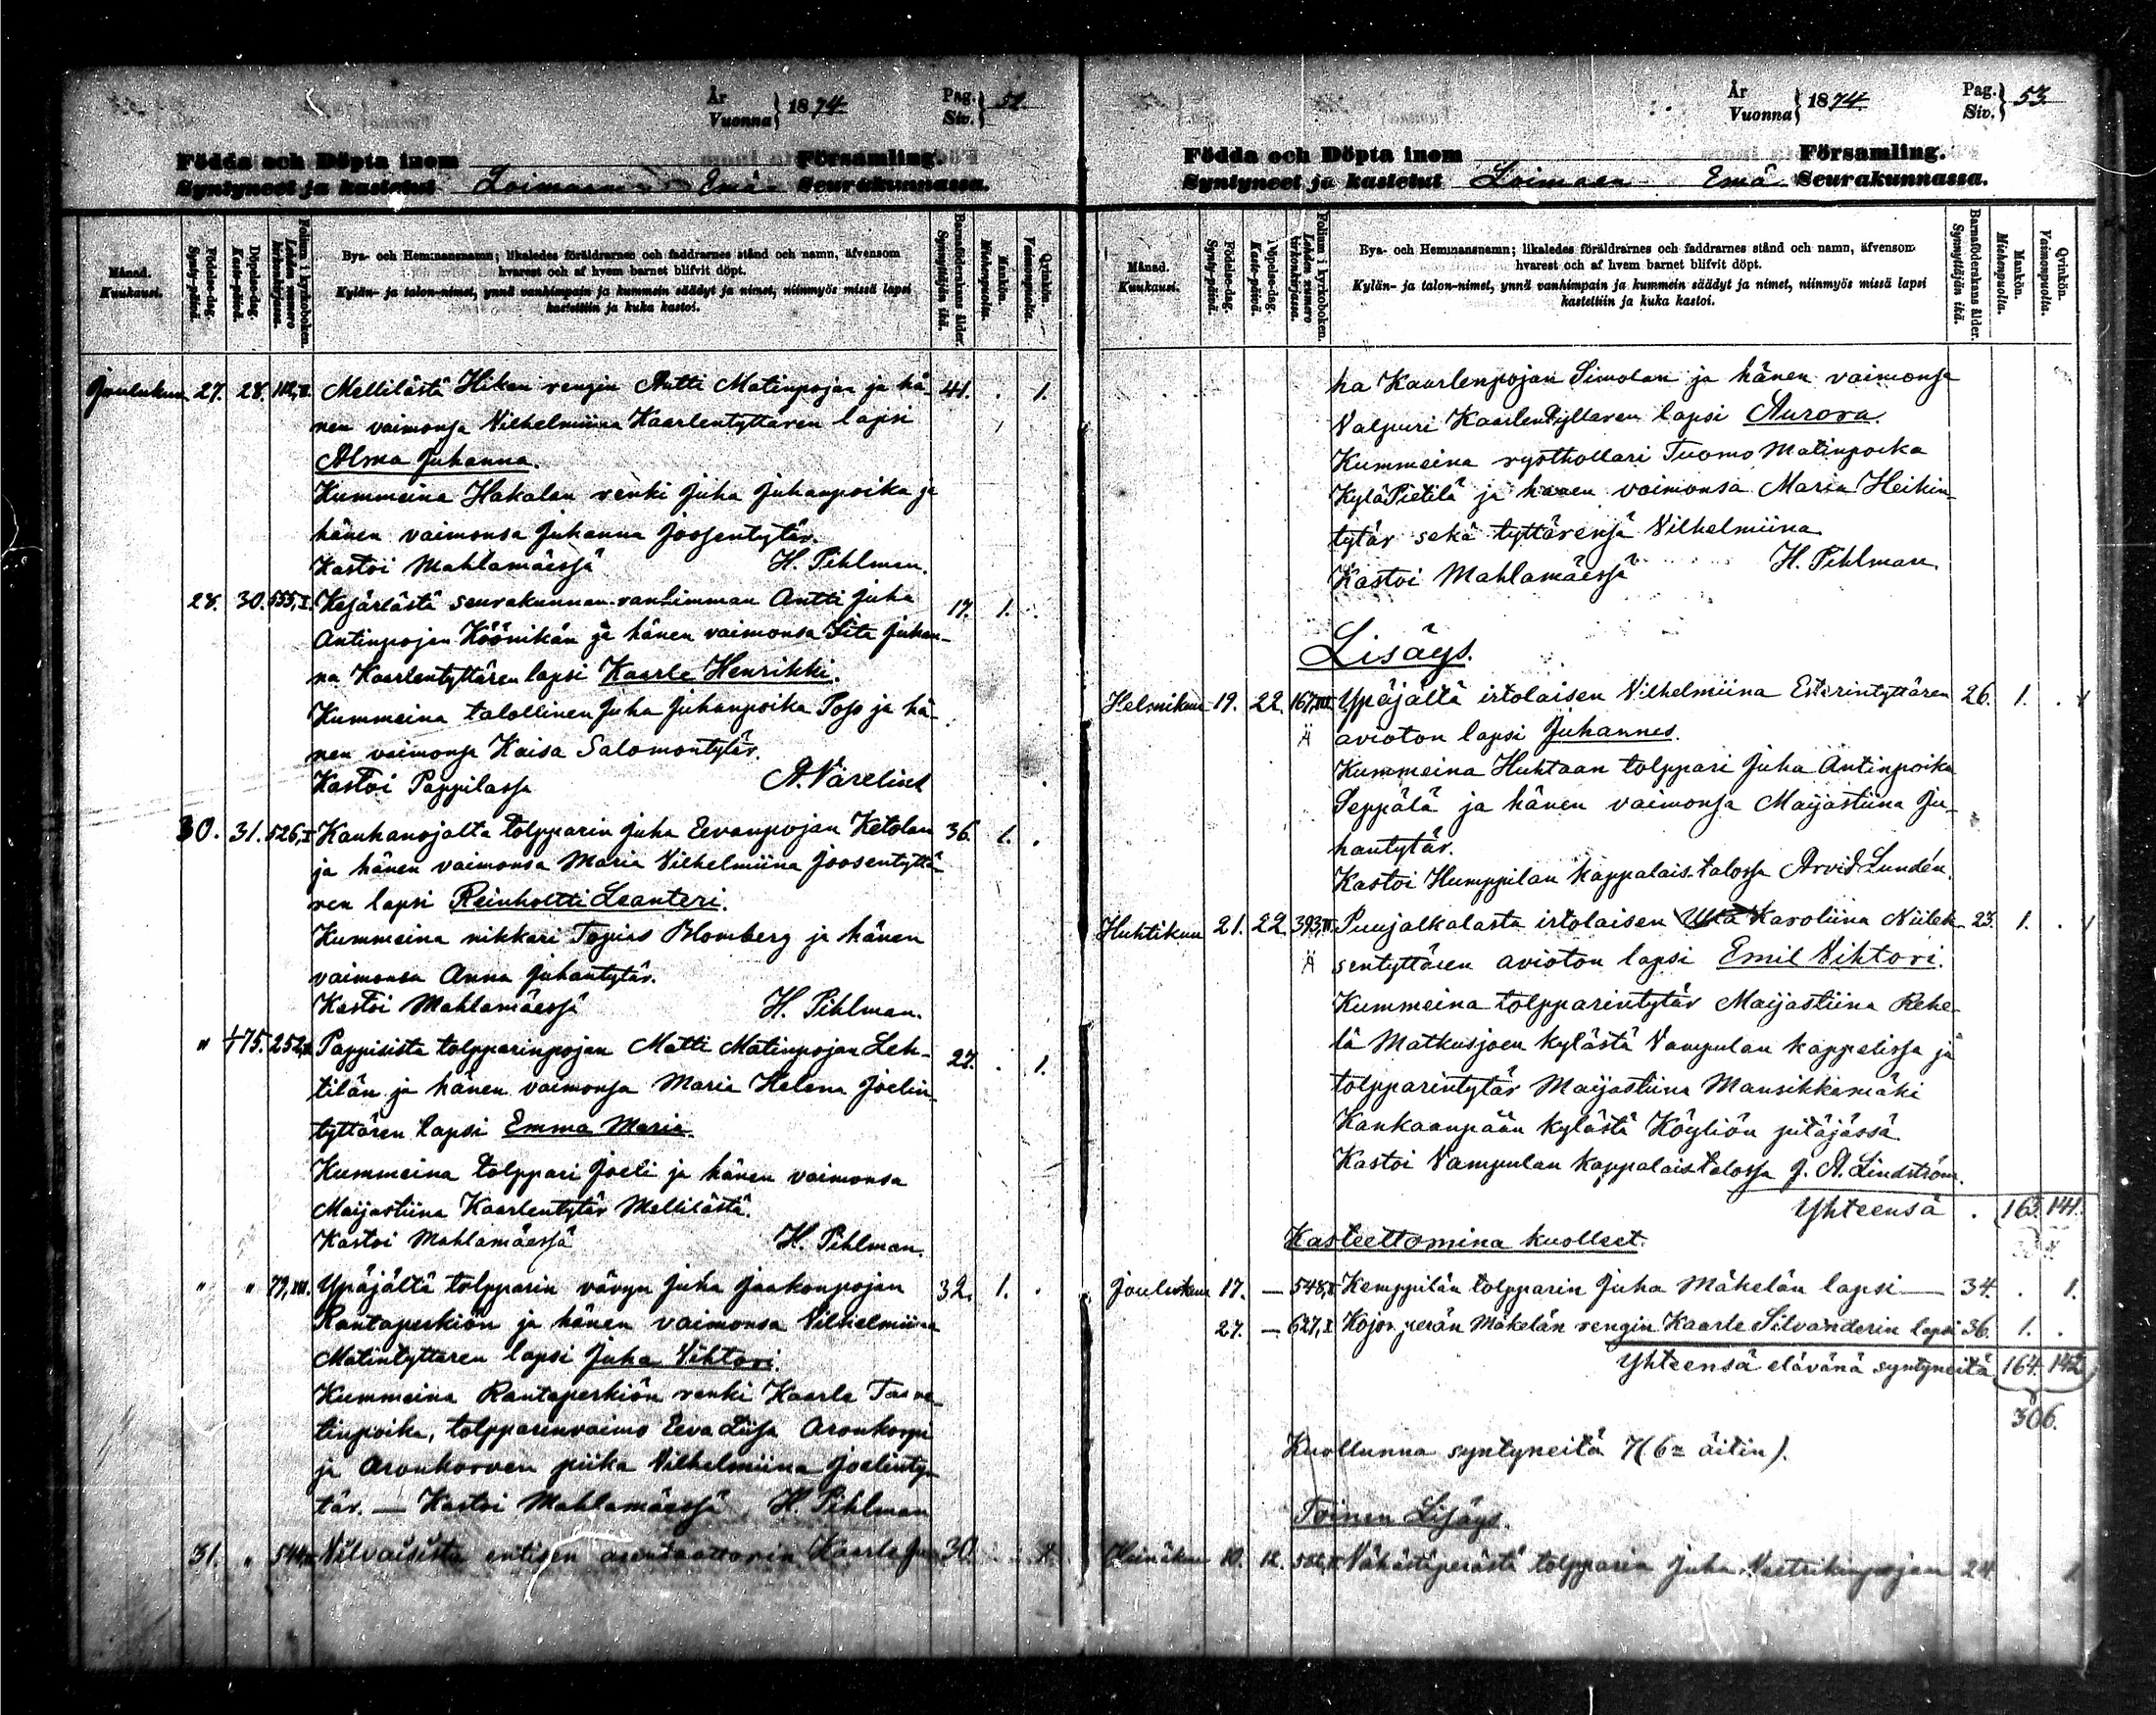 År
Vuonna } 1874
Pag.
Siv. } 52.
Födda och Döpta inom Församling.
Syntyneet ja kastetut Loimaan Emä Seurakunnassa.
Månad.
Kuukausi.
Födelse-dag.
Synty-päivä.
Döpelse-dag.
Kaste-päivä.
Folium i kyrkoboken.
Lehden numero kirkonkirjassa.
Bya- och Hemmansnamn; likaledes föräldrarnes och faddrarnes stånd och namn, äfvensom
hvarest och af hvem barnet blifvit döpt.
Kylän- ja talon-nimet, ynnä vanhimpain ja kummein säädyt ja nimet, niinmyös missä lapsi
kastettiin ja kuka kastoi.
Barnaföderskans ålder.
Synnyttäjän ikä.
Mankön.
Miehenpuolta.
Qvinkön.
Vaimonpuolta.
Joulukuu 27. 28. Mellilästä Hiken rengin Antti Matinpojan ja hä- 41. . 1.
nen vaimonsa Vilhelmiina Kaarlentyttären lapsi
Alma Juhanna.
Kummeina Hakalan renki Juha Juhanpoika ja
hänen vaimonsa Juhanna Joosentytär.
Kastoi Mahlamäessä H. Pihlman.
28. 30. 555,I. Kesärlästä seurakunnan vanhimman Antti Juha 17. 1. .
Antinpojan Köönikän ja hänen vaimonsa Juhan-
na Kaarlentyttären lapsi Kaarle Henrikki.
Kummeina talollinen Juha Juhanpoika Poso ja hä-
nen vaimonsa Kaisa Salomontytär.
Kastoi Pappilassa A. Varelius
30. 31. 526,I Kauhanojalta tolpparin Juha Eevanpojan Ketolan 36. 1. .
ja hänen vaimonsa Maria Vilhelmiina Joosentyttä-
ren lapsi Reinholtti Leanteri.
Kummeina nikkari Topias Blomberg ja hänen
vaimonsa Anna Juhantytär.
Kastoi Mahlamäessä H. Pihlman.
" 1/1 75. 252, Pappisista tolpparinpojan Matti Matinpojan Leh- 27. . 1.
tilän ja hänen vaimonsa Maria Helena Joelin-
tyttären lapsi Emma Maria.
Kummeina tolppari Joeli ja hänen vaimonsa
Maijastiina Kaarlentytär Mellilästä.
Kastoi Mahlamäessä H. Pihlman.
" " 79,III. Ypäjältä tolpparin vävyn Juha Jaakonpojan 32. 1. .
Rantaperkiön ja hänen vaimonsa Vilhelmiina
Matintyttären lapsi Juha Vihtori.
Kummeina Rantaperkiön renki Kaarle Taave-
tinpoika, tolpparinvaimo Eeva Liisa Aronkorpi
ja Aronkorven piika Vilhelmiina Joelinty-
tär. — Kastoi Mahlamäessä H. Pihlman
31. " 544 Vilvaisista entisen Kaarle Ju- 30. . 1.
År
Vuonna } 1874.
Pag.
Siv. } 53.
Födda och Döpta inom Församling.
Syntyneet ja kastetut Loimaan Emä Seurakunnassa.
Månad.
Kuukausi.
Födelse-dag.
Synty-päivä.
Döpelse-dag.
Kaste-päivä.
Folium i kyrkoboken.
Lehden numero kirkonkirjassa.
Bya- och Hemmansnamn; likaledes föräldrarnes och faddrarnes stånd och namn, äfvensom
hvarest och af hvem barnet blifvit döpt.
Kylän- ja talon-nimet, ynnä vanhimpain ja kummein säädyt ja nimet, niinmyös missä lapsi
kastettiin ja kuka kastoi.
Barnaföderskans ålder.
Synnyttäjän ikä.
Mankön.
Miehenpuolta.
Qvinkön.
Vaimonpuolta.
ha Kaarlenpojan Simolan ja hänen vaimonsa
Valpuri Kaarlentyttären lapsi Aurora.
Kummeina rysthollari Tuomo Matinpoika
KyläPietilä ja hänen vaimonsa Maria Heikin-
tytär sekä tyttärensä Vilhelmiina
Kastoi Mahlamäessä H. Pihlman
Lisäys.
Helmikuu 19. 22. 167,III Ypäjältä irtolaisen Vilhelmiina Esterintyttären 26. 1. .
Ä avioton lapsi Juhannes.
Kummeina Huhtaan tolppari Juha Antinpoika
Seppälä ja hänen vaimonsa Maijastiina Ju-
hantytär.
Kastoi Humppilan kappalais.talossa Arvid Lundén.
Huhtikuu 21. 22. 393,II. Puujalkalasta irtolaisen Karoliina Niilek- 23. 1. .
Ä sentyttären avioton lapsi Emil Vihtori.
Kummeina tolpparintytär Maijastiina Rehe-
lä Matkusjoen kylästä Vampulan kappelissa ja
tolpparintytär Maijastiina Mansikkamäki
Kankaanpään kylästä Köyliön pitäjässä.
Kastoi Vampulan kappalaistalossa J. A. Lindström.
Yhteensä . 163. 141.
Kasteettomina kuolleet.
Joulukuu 17. — 548,I Kemppilän tolpparin Juha Mäkelän lapsi — 34. . 1.
27. — 627,I Kojonperän Mäkelän rengin Kaarle Silvanderin lapsi 36. 1. .
Yhteensä elävänä syntyneitä 164. 142
306.
Kuollunna syntyneitä 7 (6 äitin).
Toinen Lisäys.
Heinäkuu 10. 12. Vähästäperästä tolpparin Juha 24 1